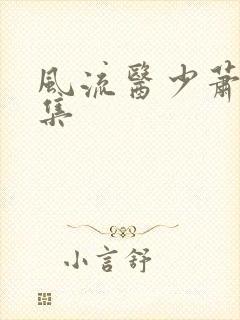 風流醫少蕭
集
小言舒